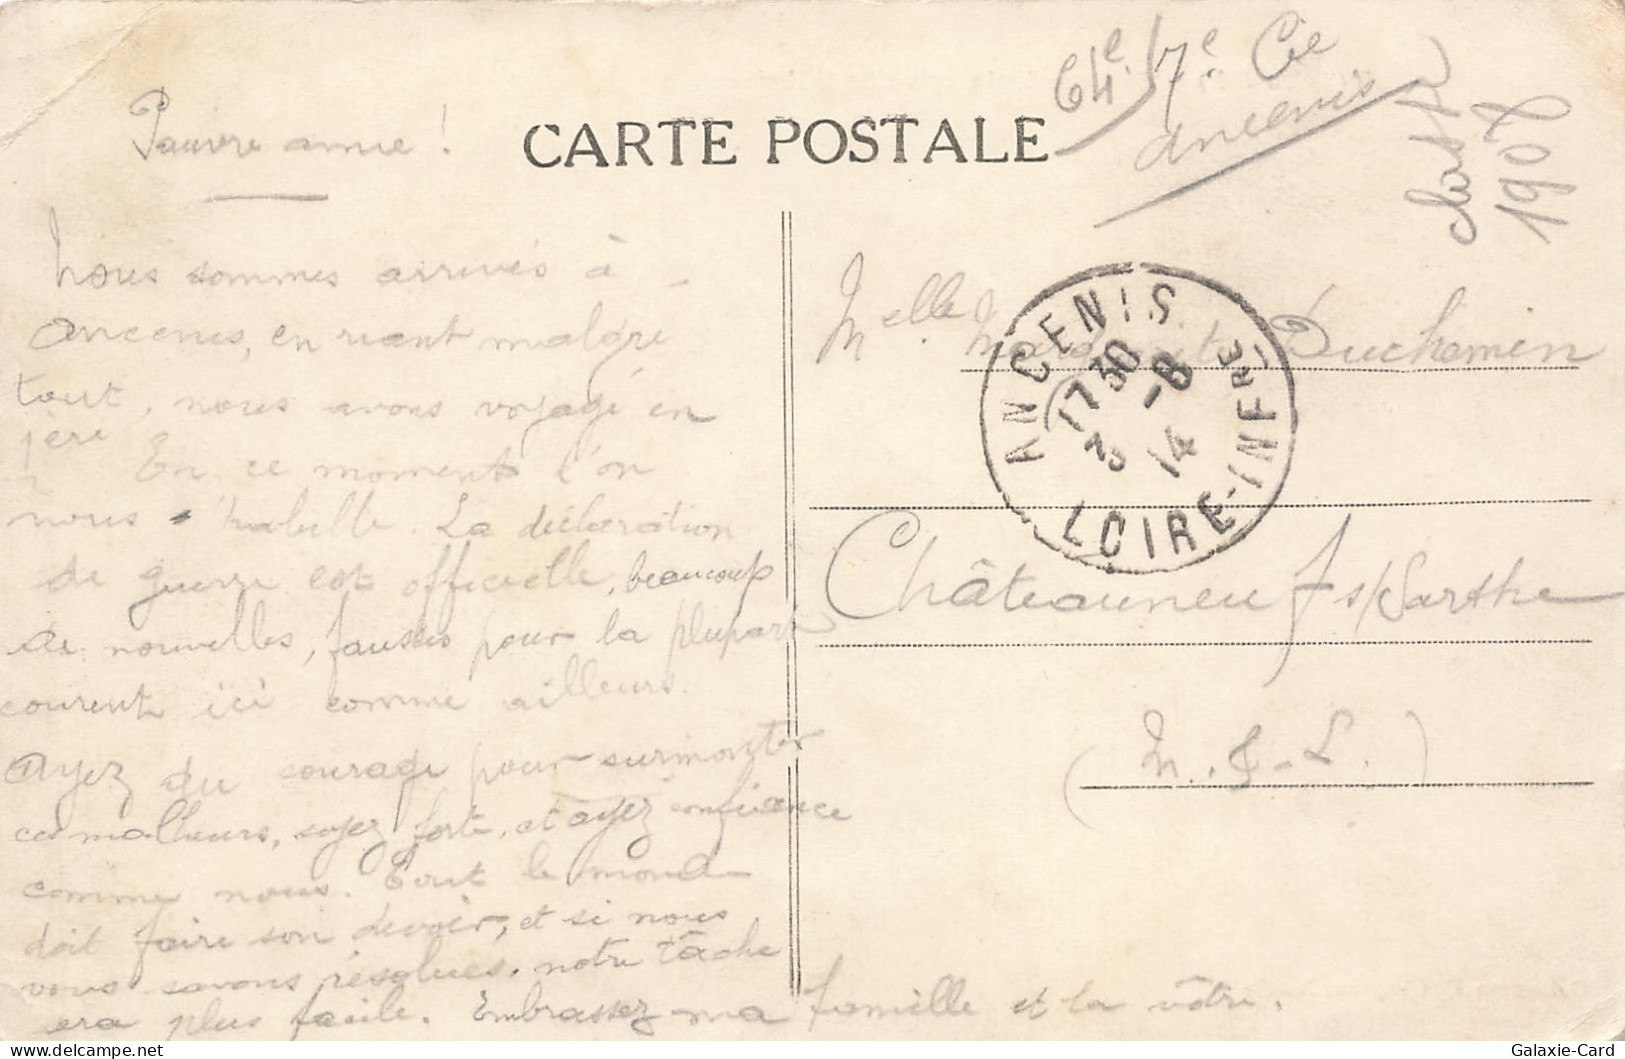 Pauvre amie !
CARTE POSTALE
64e 17e Cie
Ancenis
classe
1907
Nous sommes arrivés à
Ancenis, en riant malgré
tout, nous avons voyagé en
1ère En ce moment l'on
nous habille. La déclaration
de guerre est officielle, beaucoup
de nouvelles, fausses pour la plupart
courent ici comme ailleurs.
Ayez du courage pour surmonter
ces malheurs, soyez forte, et ayez confiance
comme nous. Tout le monde
doit faire son devoir, et si nous
vous savons résolues, notre tâche
era plus facile. Embrassez ma famille et la vôtre.
Melle Marguerite Duchemin
ANCENIS
17 30
3 -8
14
LOIRE-INFRE
Châteauneuf s/Sarthe
(M.&-L.)
Galaxie-Card